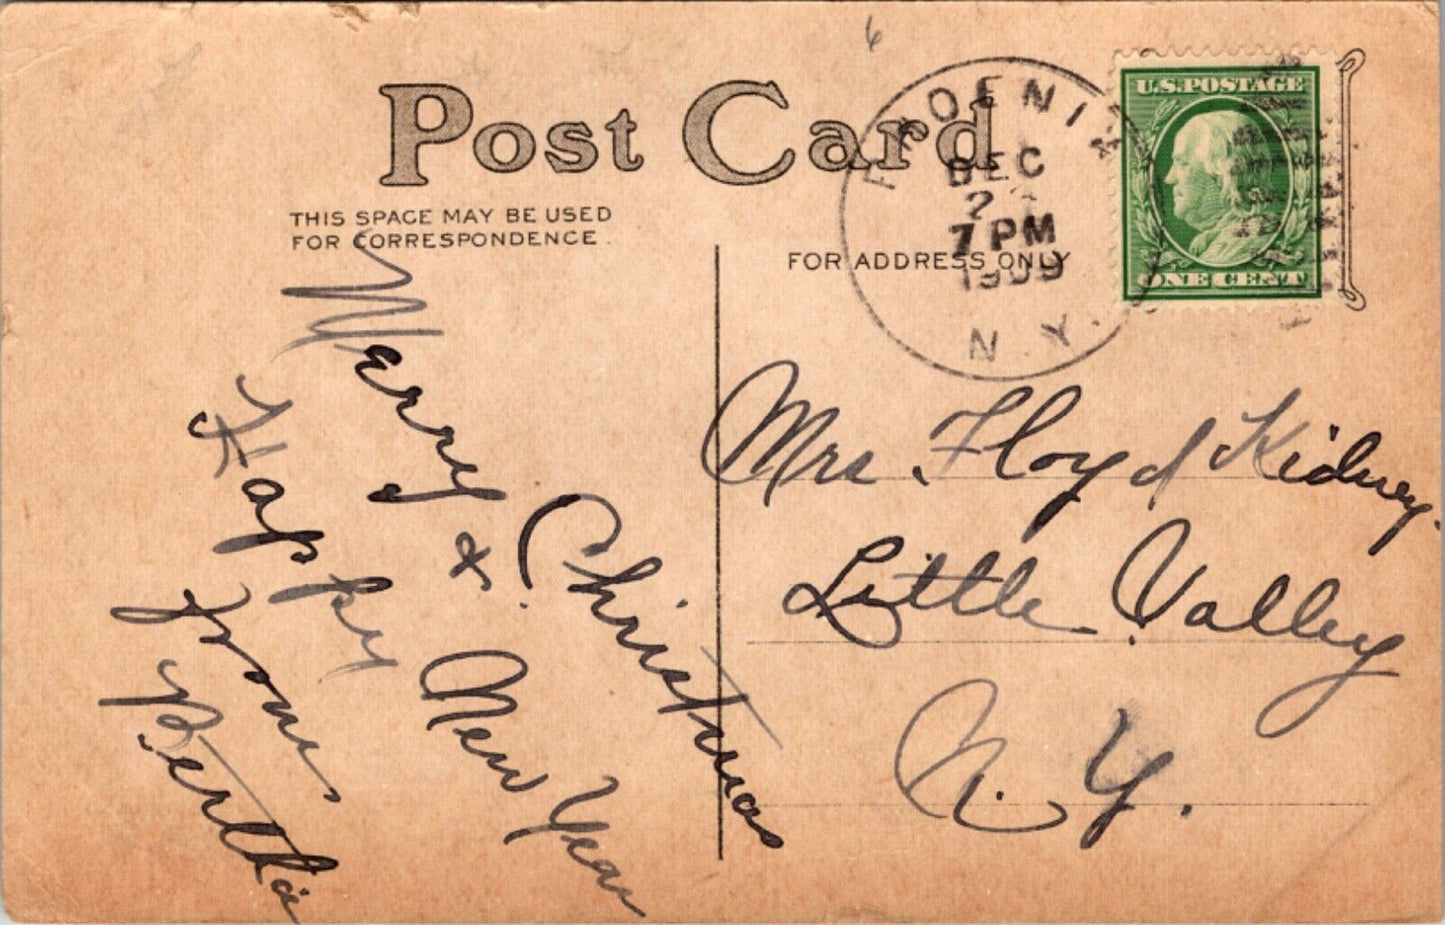 6
Post Card
THIS SPACE MAY BE USED
FOR CORRESPONDENCE.
FOR ADDRESS ONLY
PHOENIX
DEC
7 PM
1909
N.Y.
U.S. POSTAGE
ONE CENT
Merry Christmas
& Happy New Year
from
Bertha
Mrs. Floyd Kidney.
Little Valley
N. Y.